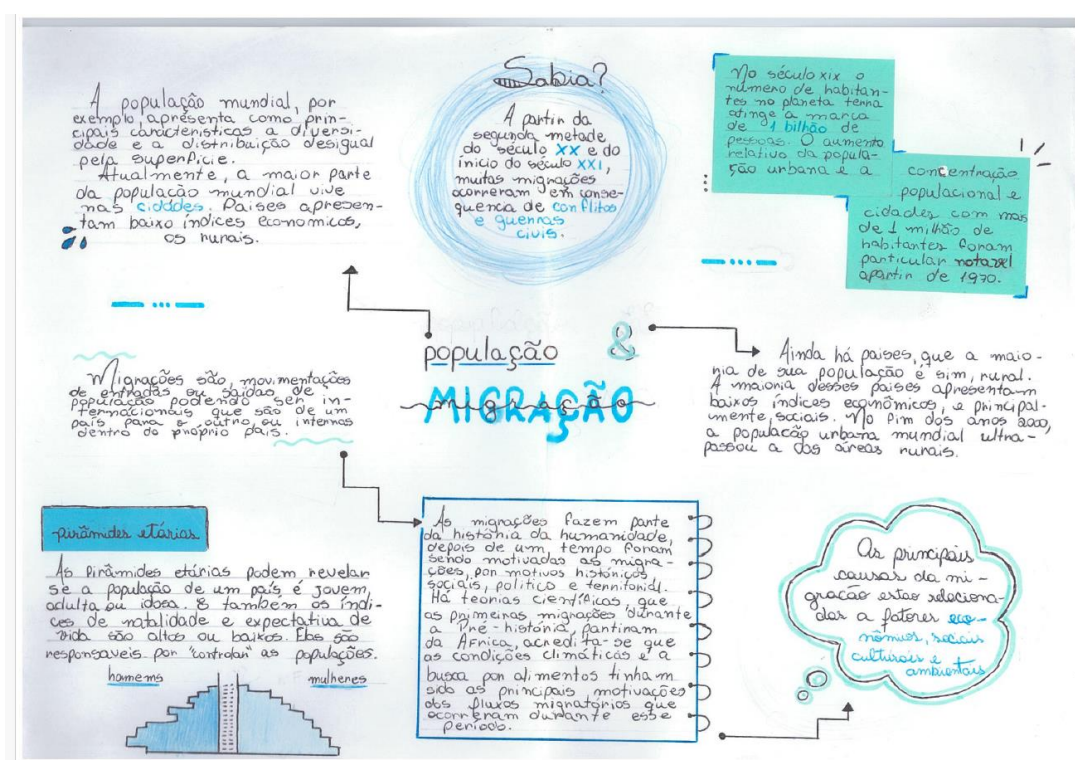 A população mundial, por
exemplo, apresenta como prin-
cipais características a diversi-
dade e a distribuição desigual
pela superfície.
Atualmente, a maior parte
da população mundial vive
nas cidades. Países apresen-
tam baixo índices economicos,
os rurais.
Sabia?
A partir da
segunda metade
do século XX e do
início do século XXI,
muitas migrações
ocorreram em conse-
quencia de conflitos
e guerras
civis.
No século xix o
número de habitan-
tes no planeta terra
atinge a marca
de 1 bilhão de
pessoas. O aumento
relativo da popula-
ção urbana e a
concentração
populacional e
cidades com mas
de 1 milhão de
habitantes foram
particular notavel
apartir de 1970.
população &
MIGRAÇÃO
migração
Migrações são, movimentações
de entradas ou saídas de
população podendo ser in-
ternacionais que são de um
país para o outro, ou internos
dentro do próprio país.
Ainda há paises, que a maio-
ria de sua população é sim, rural.
A maioria desses países apresentam
baixos índices econômicos, e principal-
mente, sociais. No fim dos anos 2000,
a população urbana mundial ultra-
passou a das áreas rurais.
pirâmides etárias
As pirâmides etárias podem revelar
se a população de um país é jovem,
adulta ou idosa. E tambem os índi-
ces de natalidade e expectativa de
vida são altos ou baixos. Elas são
responsaveis por "controlar" as populações.
homens
mulheres
As migrações fazem parte
da história da humanidade,
depois de um tempo foram
sendo motivadas as migra-
ções, por motivos históricos
sociais, político e territorial.
Há teorias científicas, que
as primeiras migrações durante
a Pré-história, partiram
da África, acredita-se que
as condições climáticas e a
busca por alimentos tinham
sido as principais motivações
dos fluxos migratórios que
ocorreram durante esse
período.
As principais
causas da mi-
gração estao relaciona-
das a fatores eco-
nômicos, sociais
culturais e
ambientais